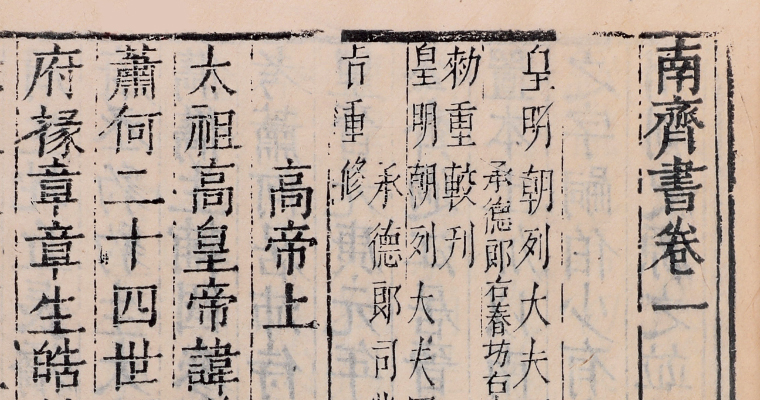 南齊書卷一
皇明朝列大夫
承德郎右春坊右
勑重較刋
皇明朝列大夫
承德郎司
旨重修
高帝上
太祖高皇帝諱
蕭何二十四世
府掾章章生皓